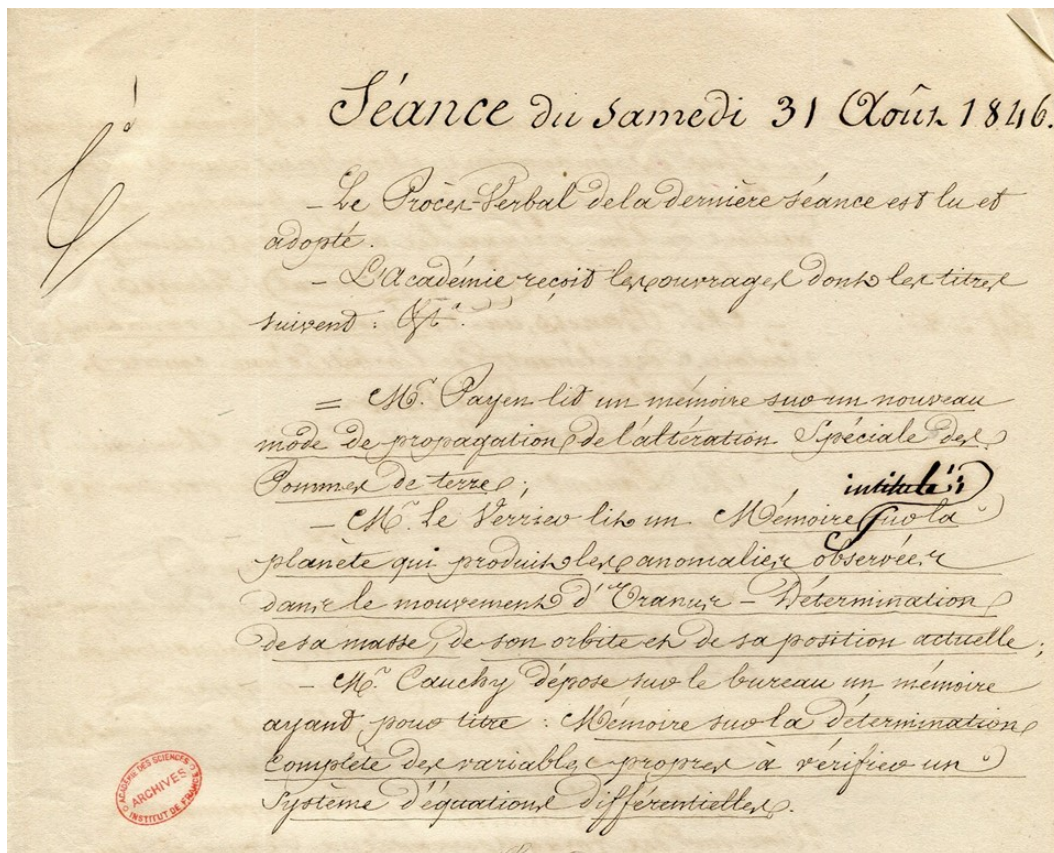 Séance du samedi 31 Août 1846.
– Le Procès-Verbal de la dernière séance est lu et
adopté.
– L'Académie reçoit les ouvrages dont les titres
suivent :
= M. Payen lit un mémoire sur un nouveau
mode de propagation de l'altération Spéciale des
Pommes de terre ;
intitulé :
– Mr. Le Verrier lit un Mémoire sur la
planète qui produit les anomalies observées
dans le mouvement d'Uranus – Détermination
de sa masse, de son orbite et de sa position actuelle ;
– Mr. Cauchy dépose sur le bureau un mémoire
ayant pour titre : Mémoire sur la détermination
complète des variables propres à vérifier un
Système d'équations différentielles.
ACADÉMIE DES SCIENCES
ARCHIVES
INSTITUT DE FRANCE